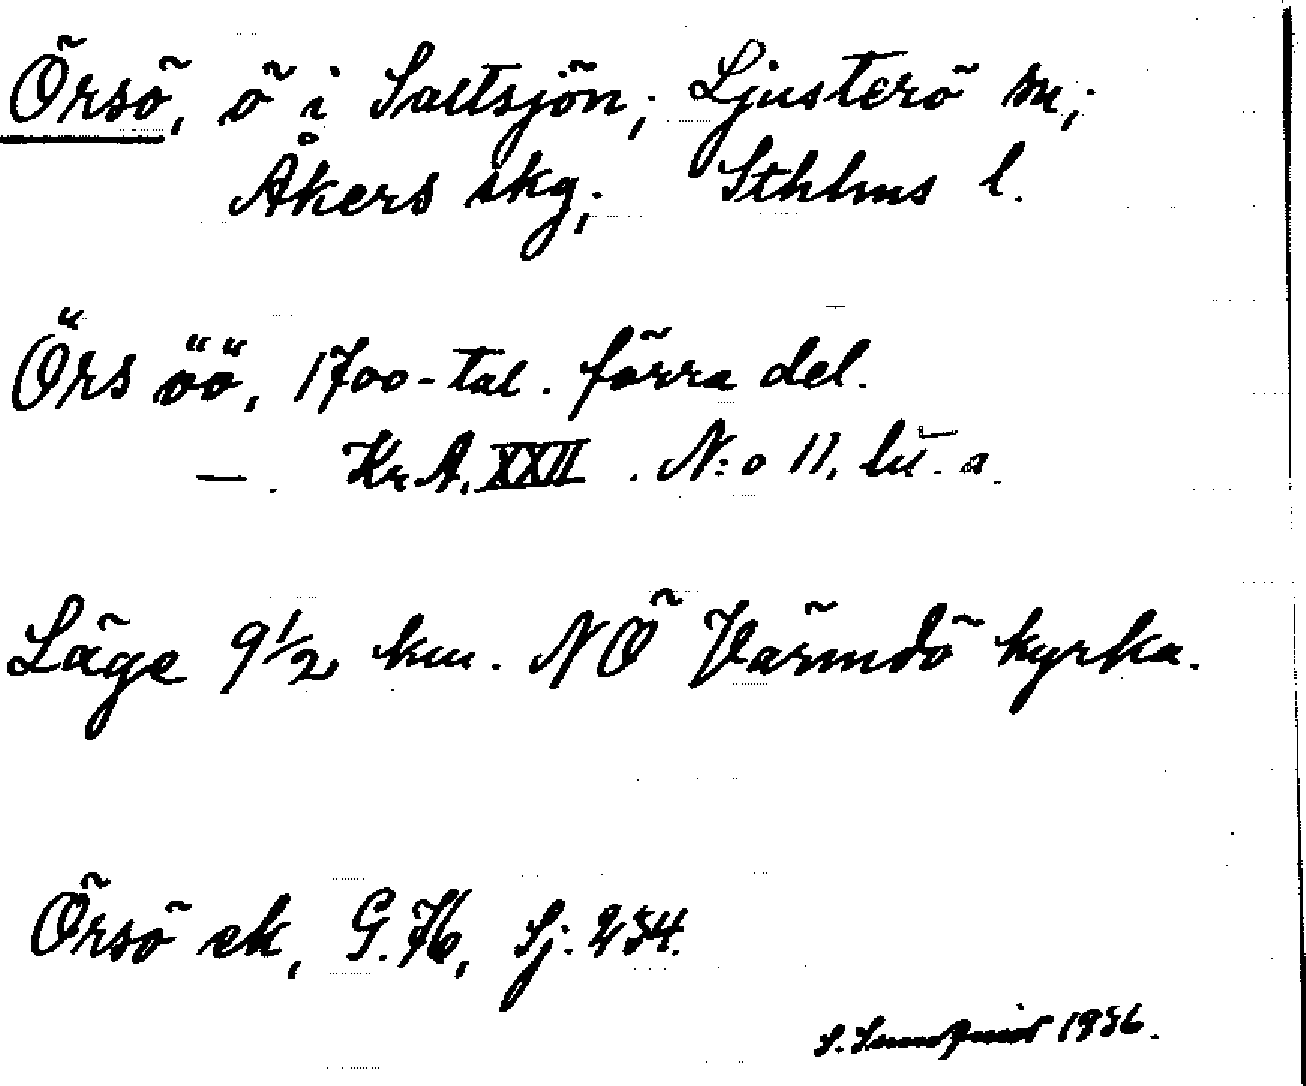 Örsö, ö i Saltsjön; Ljusterö sn;
Åkers skg; Sthlms l.
Örs öö, 1700-tal. förra del.
—. Kr. A. XXII. N:o 11. lit. a.
Läge 9 1/2 km. NÖ Värmdö kyrka.
Örsö ek, G. 76, Sj. 254.
S. 1936.